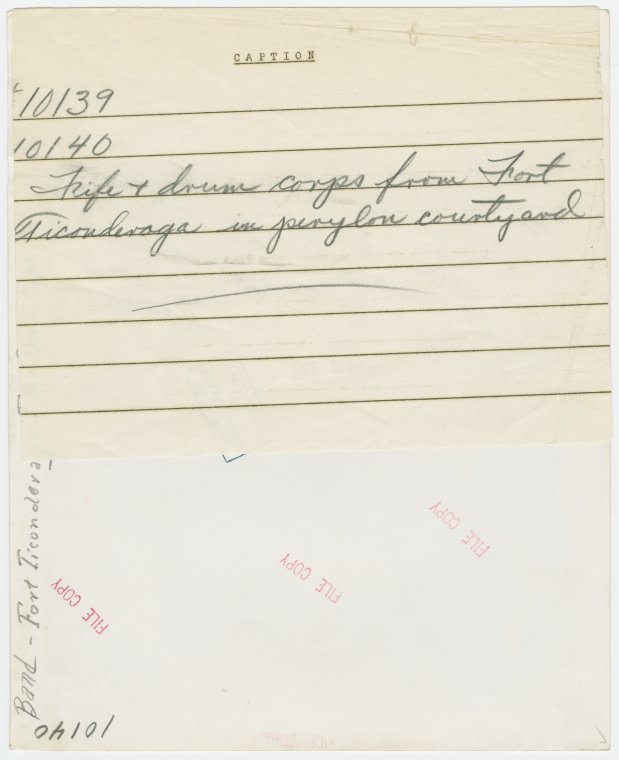 CAPTION
10139
10140
Fife + drum corps from Fort
Ticonderaga in perylon courtyard
FILE COPY
FILE COPY
FILE COPY
Band - Fort Ticondera
10140